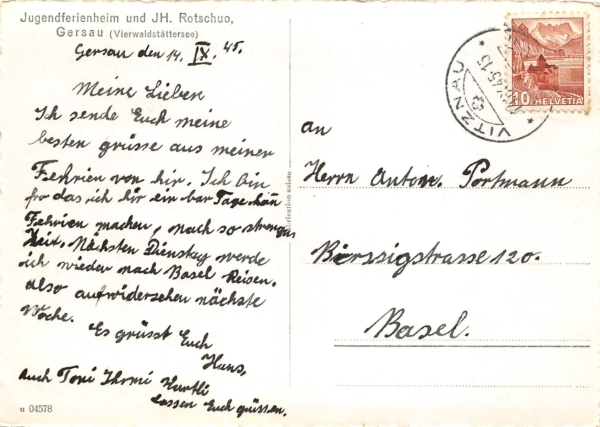 Jugendferienheim und JH. Rotschuo,
Gersau (Vierwaldstättersee)
Gersau den 14. IX. 45.
Meine Lieben
Ich sende Euch meine
besten grüsse aus meiner
Fehrien von hir. Ich bin
fro das ich hir ein bar Tage kan
Fehrien machen, nach so strenger
Zeit. Nächsten Dienstag werde
ich wieder nach Basel Reisen.
also aufwidersehen nächste
Woche.
Es grüsst Euch
Hans,
Auch Toni Kurtli
lassen Euch grüssen.
u 04578
VITZNAU
10 HELVETIA
an
Herrn Portmann
Birssigstrasse 120.
Basel.